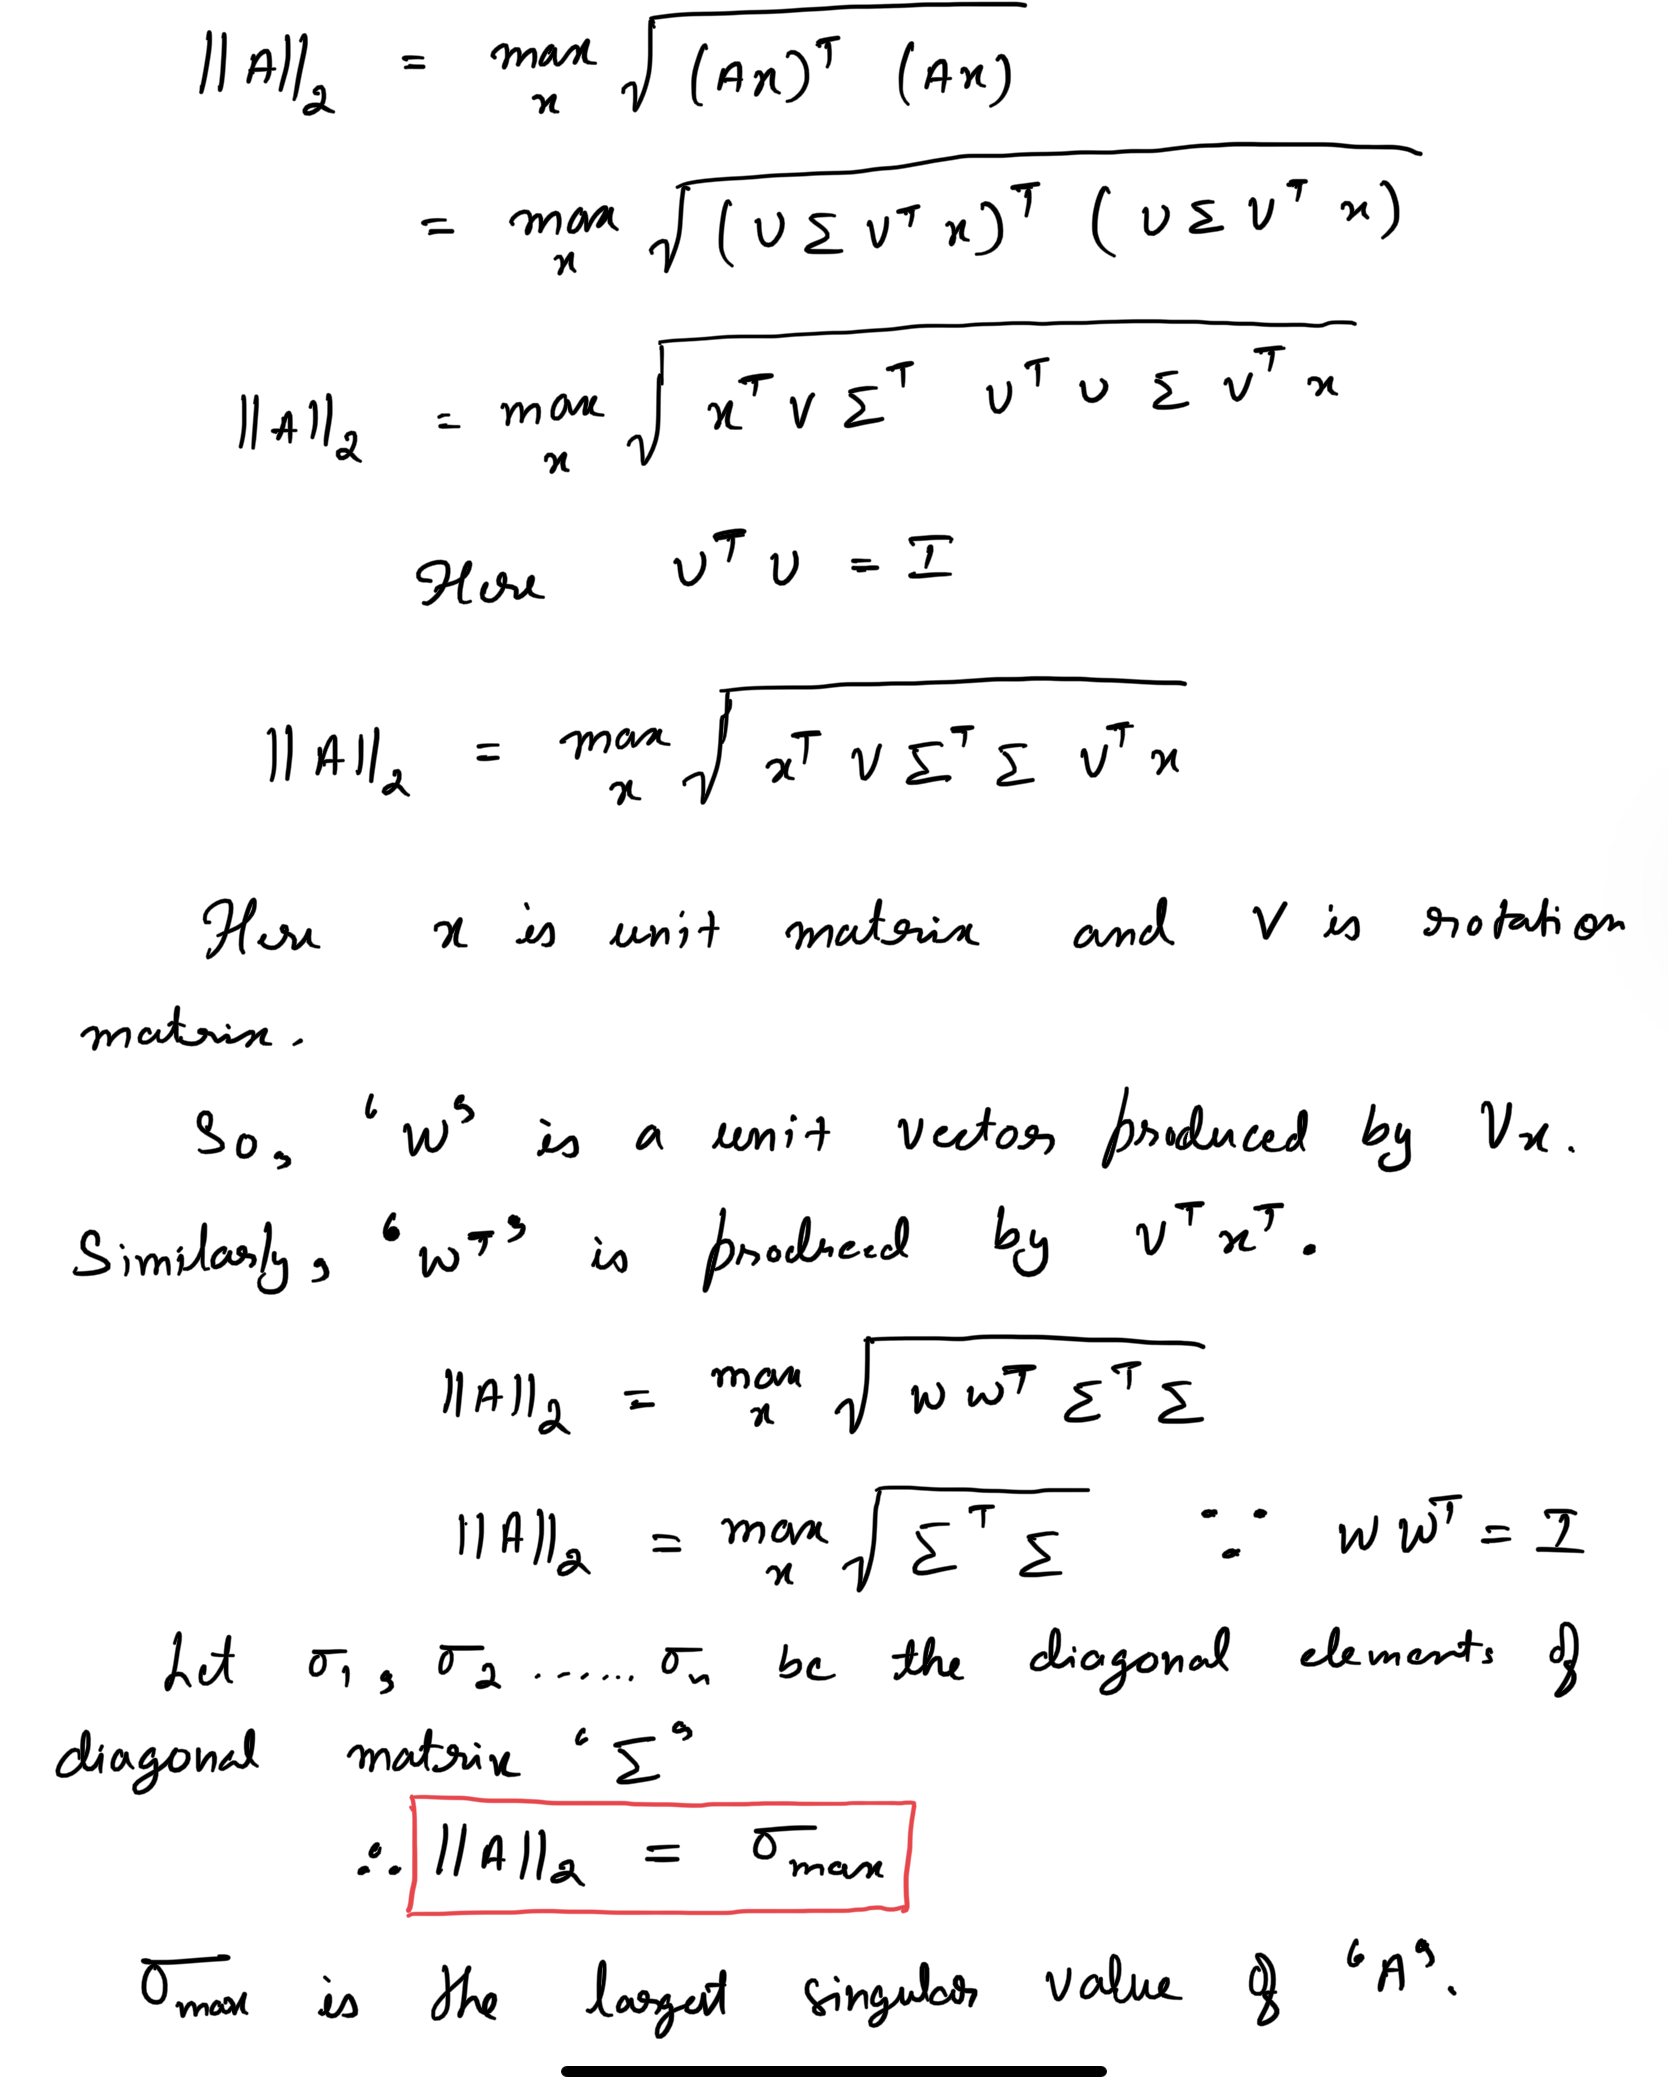 ||A||₂ = max_x √((Ax)ᵀ (Ax))
= max_x √((U Σ Vᵀ x)ᵀ (U Σ Vᵀ x))
||A||₂ = max_x √(xᵀ V Σᵀ Uᵀ U Σ Vᵀ x)
Here Uᵀ U = I
||A||₂ = max_x √(xᵀ V Σᵀ Σ Vᵀ x)
Here x is unit matrix and V is rotation
matrix.
So, 'W' is a unit vector produced by Vx.
Similarly, 'wᵀ' is produced by Vᵀ xᵀ.
||A||₂ = max_x √(w wᵀ Σᵀ Σ)
||A||₂ = max_x √(Σᵀ Σ) ∵ w wᵀ = I
Let σ₁, σ₂ ...... σₙ be the diagonal elements of
diagonal matrix 'Σ'
∴ ||A||₂ = σ_max
σ_max is the largest singular value of 'A'.